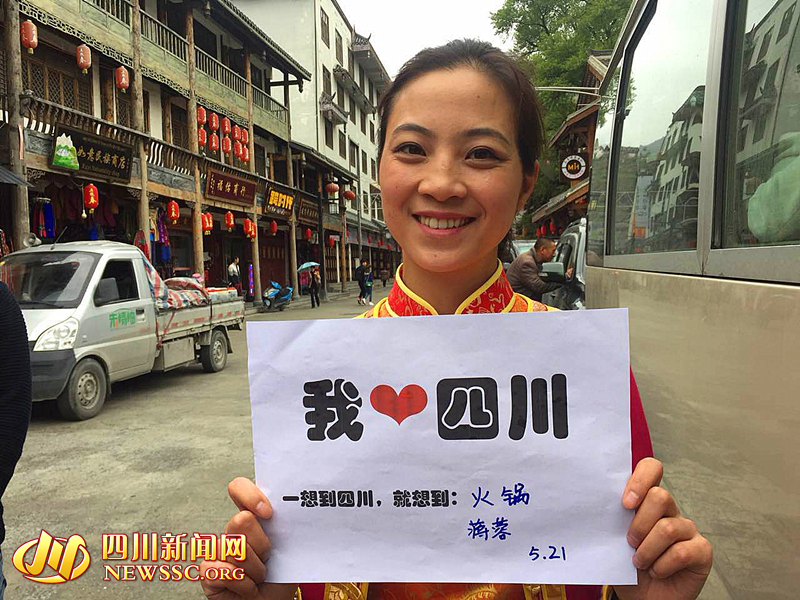 如意民族商店
我❤四川
一想到四川，就想到：火锅
蒋蓉
5.21
四川新闻网
NEWSSC.ORG